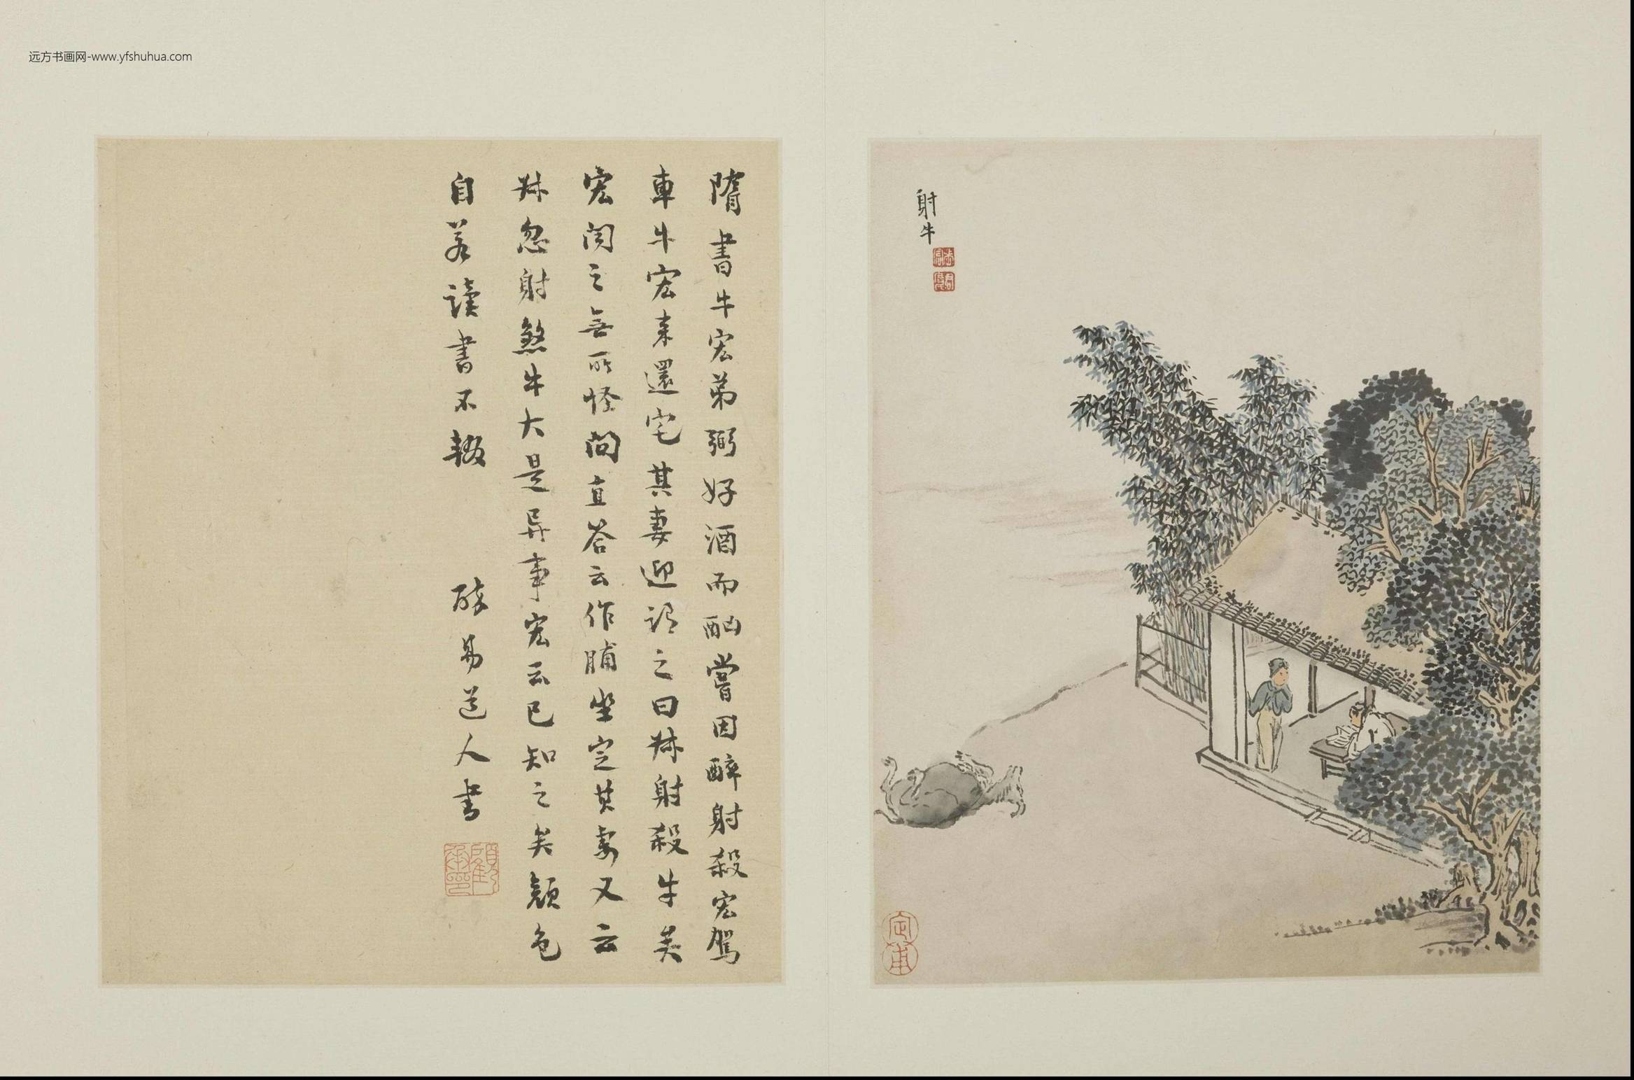 远方书画网-www.yfshuhua.com
射牛
隋書牛宏弟弼好酒而酗嘗因醉射殺宏駕
車牛宏来還宅其妻迎謂之曰叔射殺牛矣
宏闻之無所怪問直答云作脯坐定其妻又云
叔忽射煞牛大是异事宏云已知之矣顔色
自若读書不輟
醉易道人書